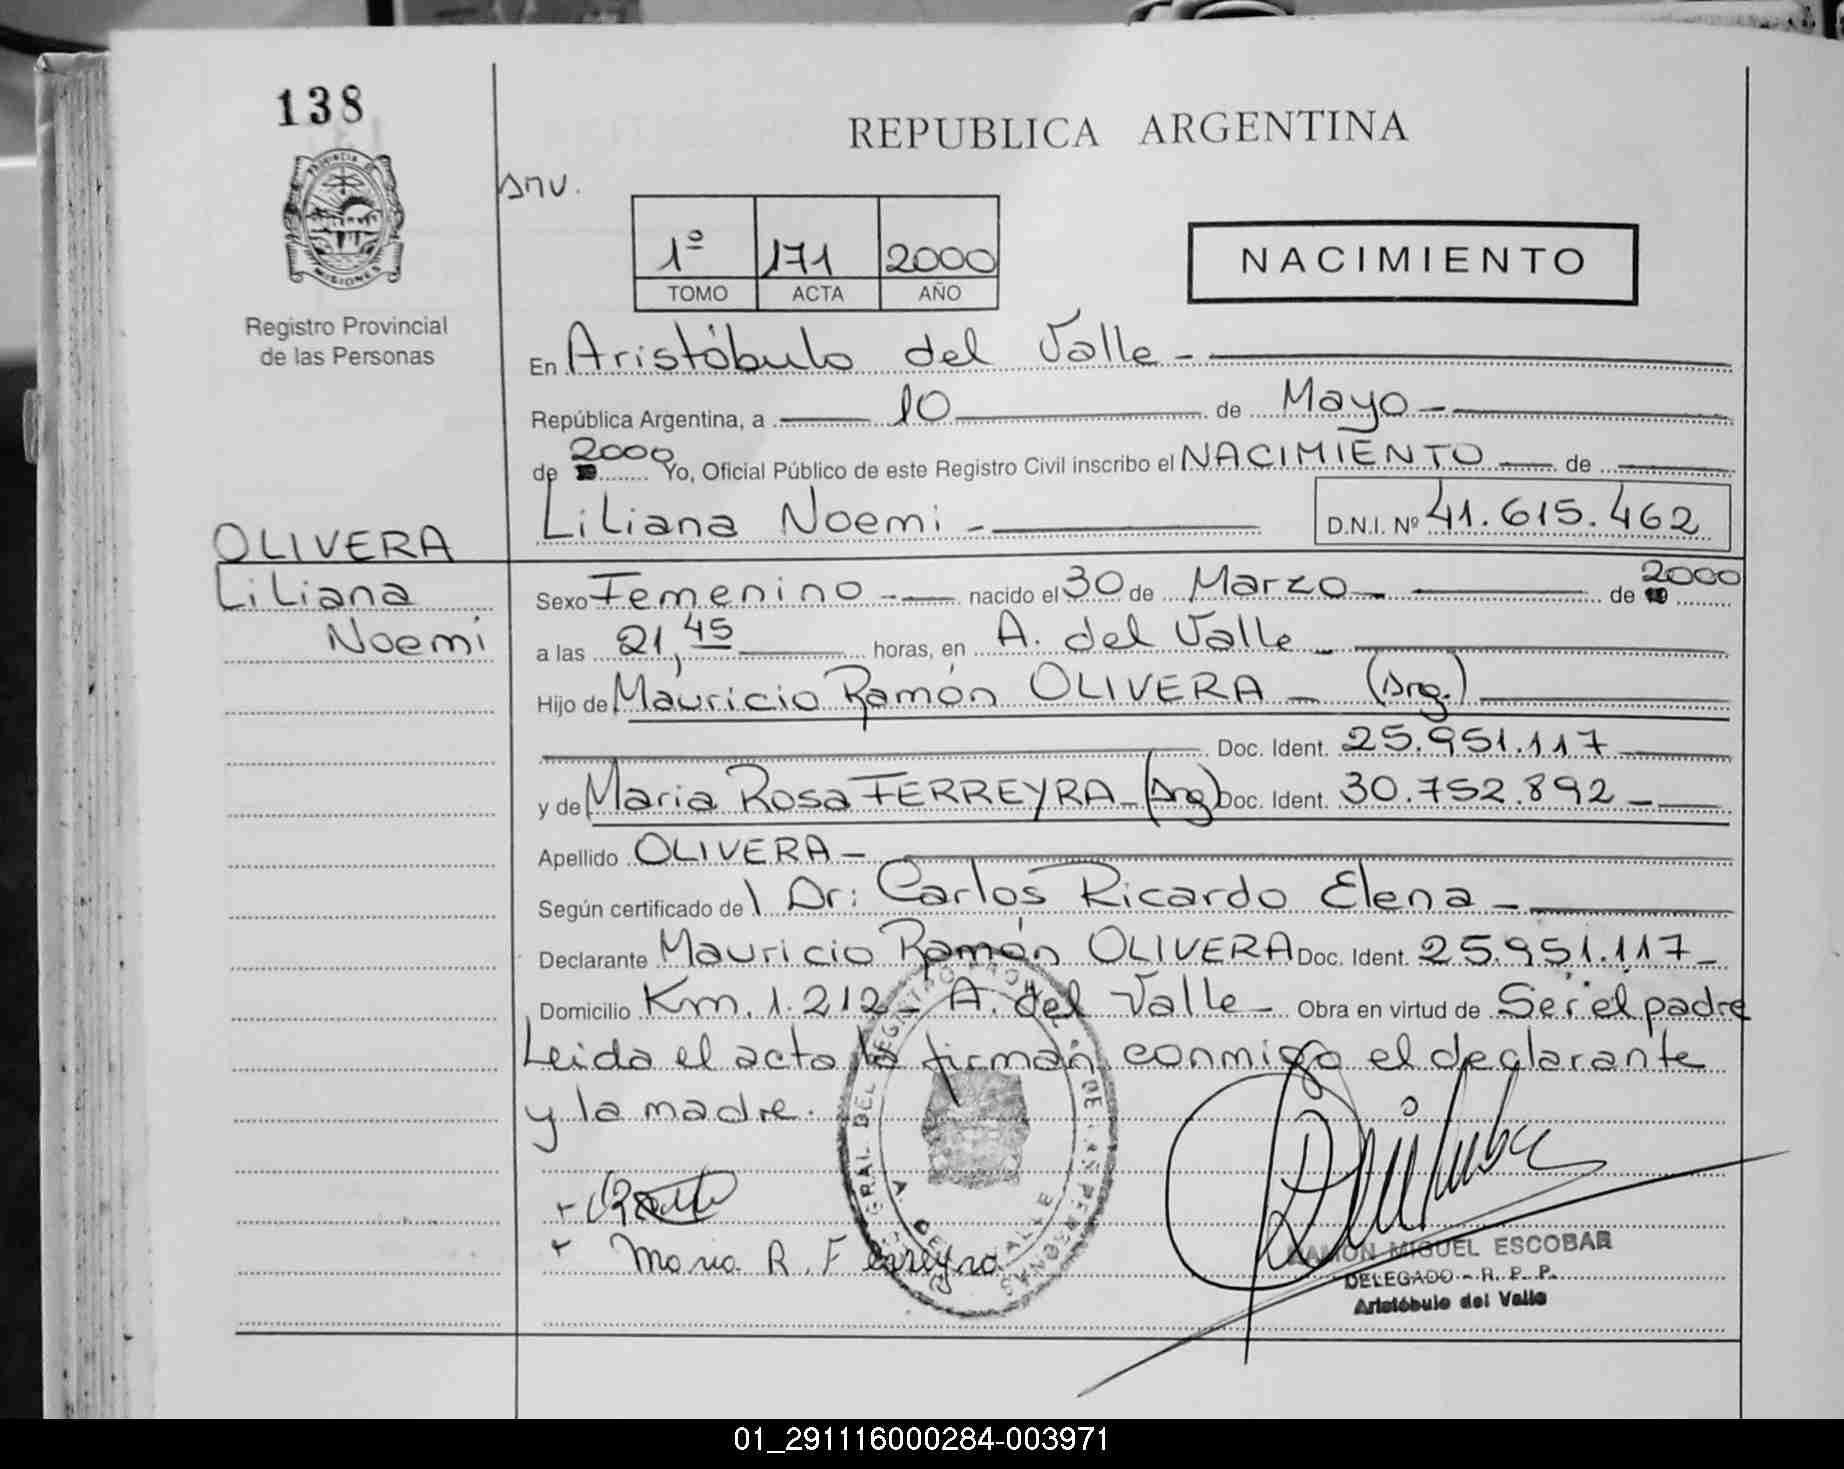 138
REPUBLICA ARGENTINA
PROVINCIA DE
MISIONES
Registro Provincial
de las Personas
1º 171 2000
TOMO ACTA AÑO
NACIMIENTO
En Aristóbulo del Valle -
República Argentina, a 10 de Mayo -
de 2000 Yo, Oficial Público de este Registro Civil inscribo el NACIMIENTO de
Liliana Noemi - D.N.I. Nº 41.615.462
OLIVERA
Liliana
Noemi
Sexo Femenino - nacido el 30 de Marzo - de 2000
a las 21,45 horas, en A. del Valle -
Hijo de Mauricio Ramón OLIVERA - (Arg.)
Doc. Ident. 25.951.117
y de Maria Rosa FERREYRA - (Arg) Doc. Ident. 30.752.892 -
Apellido OLIVERA -
Según certificado del Dr: Carlos Ricardo Elena -
Declarante Mauricio Ramón OLIVERA Doc. Ident. 25.951.117 -
Domicilio Km. 1.212 - A. del Valle - Obra en virtud de Ser el padre
Leida el acta la firman conmigo el declarante
y la madre.
Maria R. Ferreyra
RAMON MIGUEL ESCOBAR
DELEGADO - R. P. P.
Aristóbulo del Valle
01_291116000284-003971